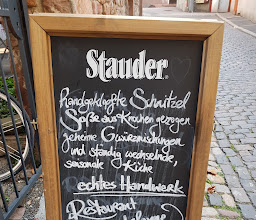 Stauder
handgeklopfte Schnitzel
Soße aus Knochen gezogen
geheime Gewürzmischungen
und ständig wechselnde,
saisonale Küche
echtes Handwerk
Restaurant